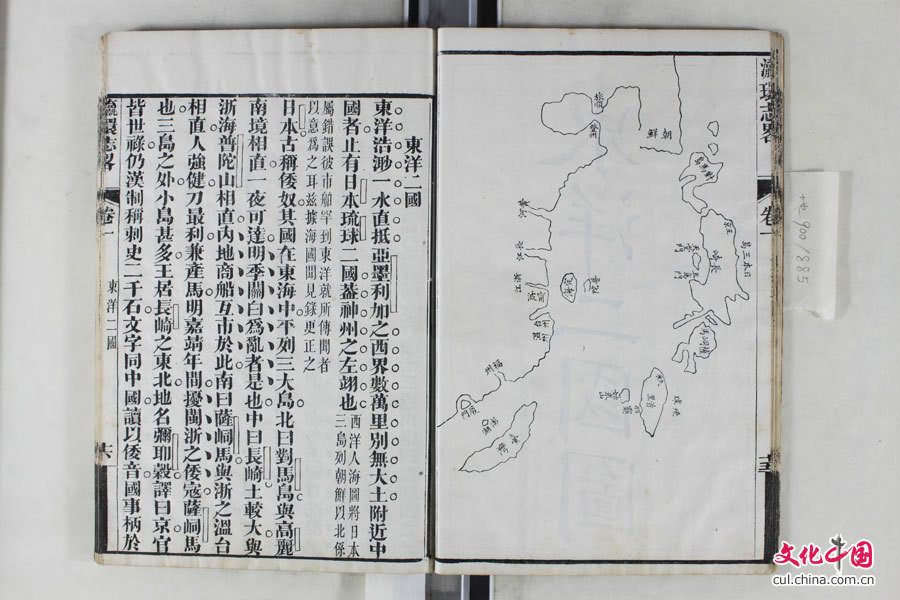 瀛環志畧
卷一
十五
朝鮮
登州
黃河
長江
江浙
台州
福州
廈門
臺灣
琉球
日本三島
長崎
對馬島
普陀
東洋二國
東洋浩渺一水直抵亞墨利加之西界數萬里別無大土附近中
國者止有日本琉球二國蓋神州之左翊也西洋人海圖將日本三島列朝鮮以北係
屬錯誤彼市舶罕到東洋就所傳聞者以意爲之耳茲據海國聞見錄更正之
日本古稱倭奴其國在東海中平列三大島北曰對馬島與高麗
南境相直一夜可達明季關白爲亂者是也中曰長崎土較大與
浙海普陀山相直內地商船互市於此南曰薩峒馬與浙之溫台
相直人強健刀最利兼產馬明嘉靖年間擾閩浙之倭寇薩峒馬
也三島之外小島甚多王居長崎之東北地名彌耶穀譯曰京官
皆世祿仍漢制稱刺史二千石文字同中國讀以倭音國事柄於
瀛環志畧
卷一
東洋二國
十六
+也 900/885
文化中国
cul.china.com.cn